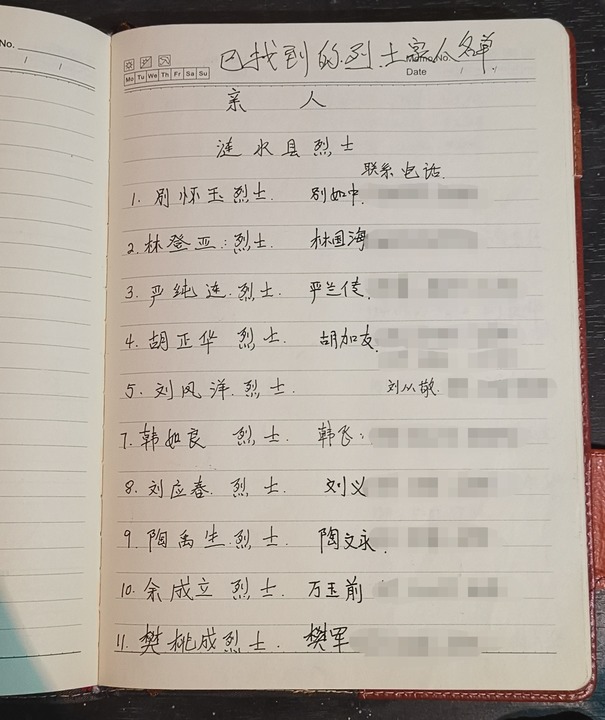 No.
/ /
Mo Tu We Th Fr Sa Su
已找到的烈士家人名单
Memo No.
Date / /
亲 人
涟水县烈士
联系电话
1. 别怀玉烈士. 别如中
2. 林登亚:烈士. 林国海
3. 严纯连.烈士. 严兰传.
4. 胡正华 烈士. 胡加友.
5. 刘凤洋.烈士. 刘从敬.
7. 韩如良 烈士. 韩飞:
8. 刘应春. 烈士. 刘义
9. 陶禹生烈士. 陶文永.
10. 余成立 烈士. 万玉前
11. 樊桃成烈士. 樊军